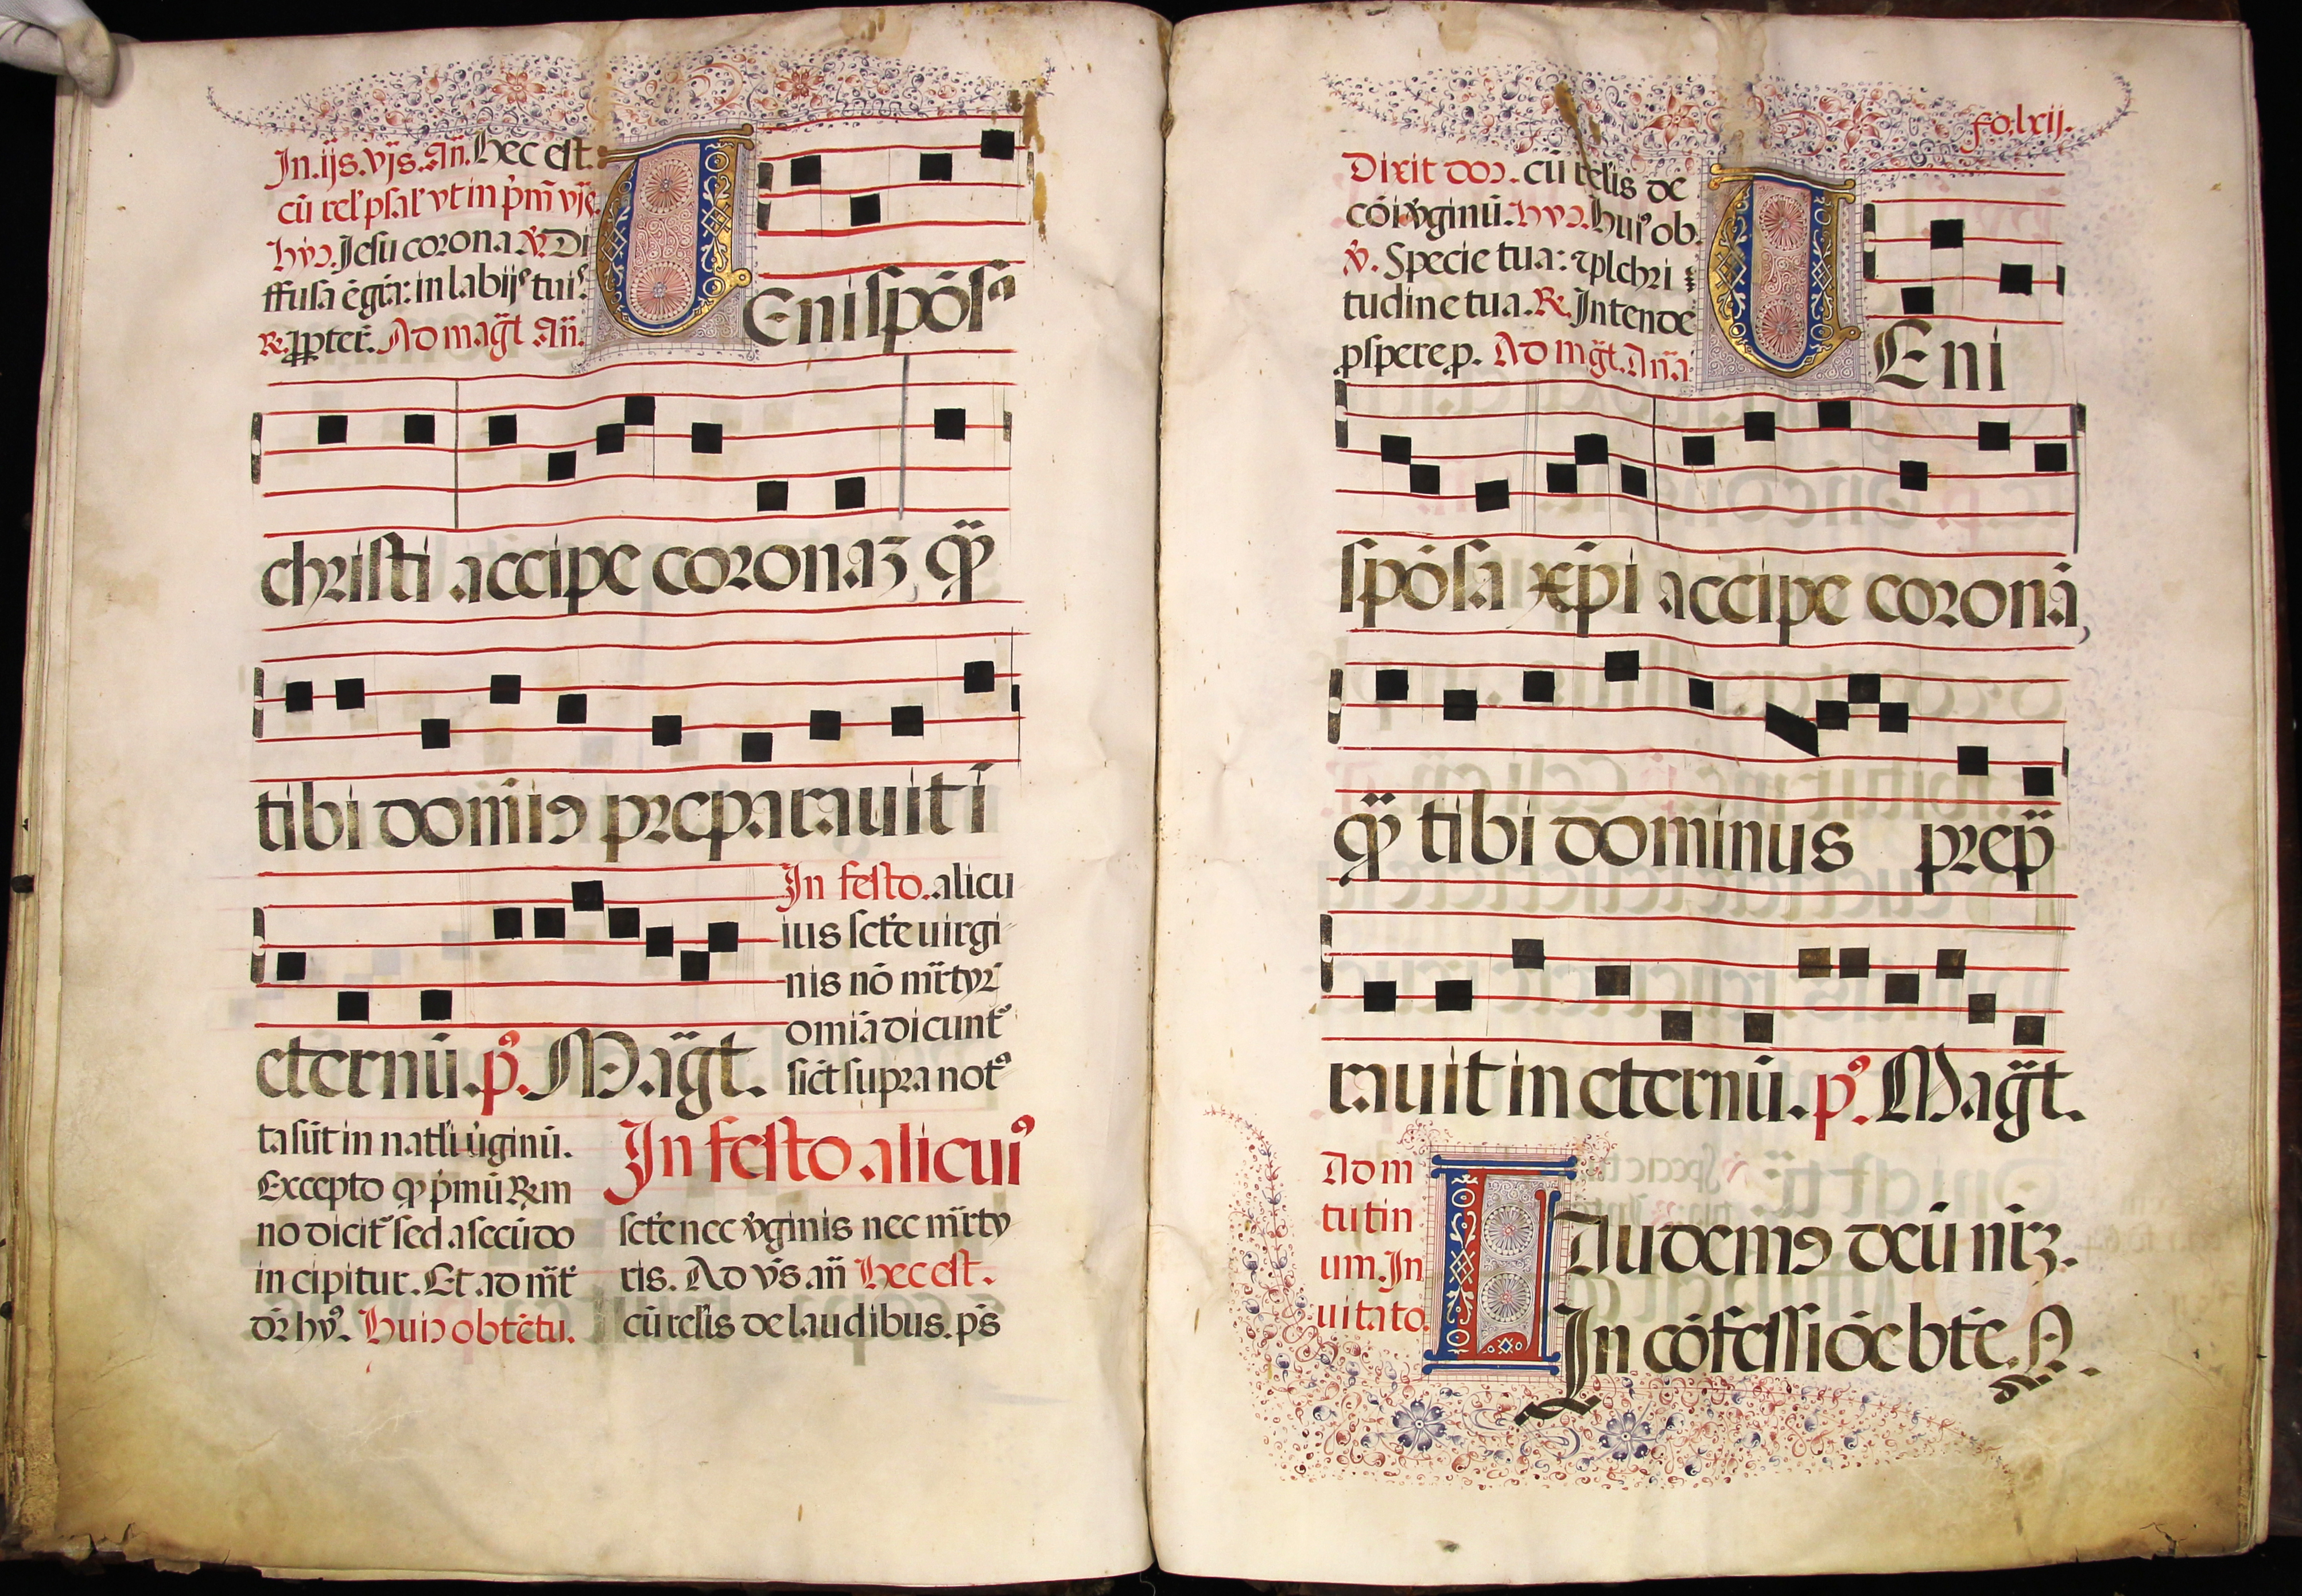 In.ijs.vjs.Añ.hec est
cū rel' psal' vt in p̉m̄ vjs.
hyɔ. Jesu corona ℣. Di
ffusa ē gr̄a: in labijs tuis.
℞. ꝓpter̄. Ad mag̃t Añ.
VEni spōsa
christi accipe coronaꝫ, qḿ
tibi dom̄iꝰ preparauit ī
eternū. pꝰ. Mag̃t.
In festo. alicu
ius sctē uirgi
nis nō mr̄tyr̄
omīa dicunt᷑
sic̄t supra not
ta sūt in natłi ůginū.
Excepto qp p̉mū ℞m
no dicit᷑ sed a secūdo
incipitur. Et ad mr̄t
dr̄ hyꝰ. huiꝰ obtētu.
In festo alicuiꝰ
sctē nec v̉ginis nec mr̄ty
ris. Ad vs̄ añ hec est.
cū relis de laudibus. ps̄
fo. lxij.
Dixit doɔ. cū relis de
cōi v̉ginū. hyɔ. huiꝰ ob.
℣. Specie tua: ⁊ plchri
tudine tua. ℞. Intende
pspere p. Ad mg̃t. Añā
VEni
spōsa xp̄i accipe coronā,
qḿ tibi dominus prep̄
rauit in eternū. pꝰ. Mag̃t.
Ad m
tutin
um. In
uitato.
LAudemꝰ deū nr̄ꝫ.
In cōfessiōe btē. A.